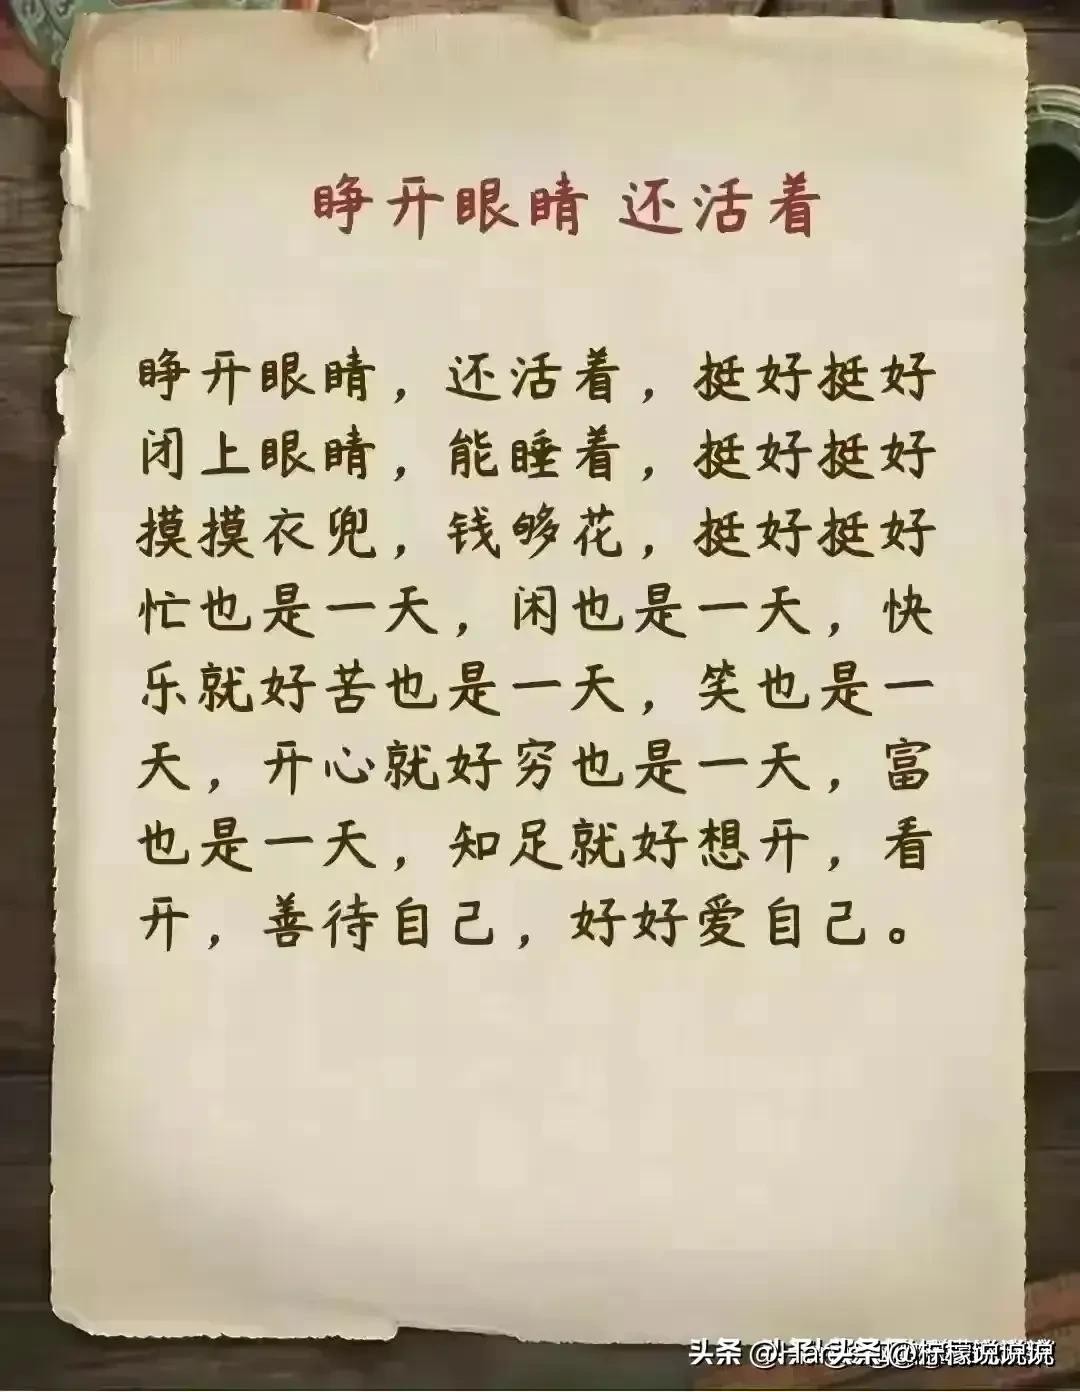 睁开眼睛 还活着
睁开眼睛，还活着，挺好挺好
闭上眼睛，能睡着，挺好挺好
摸摸衣兜，钱够花，挺好挺好
忙也是一天，闲也是一天，快
乐就好苦也是一天，笑也是一
天，开心就好穷也是一天，富
也是一天，知足就好想开，看
开，善待自己，好好爱自己。
头条